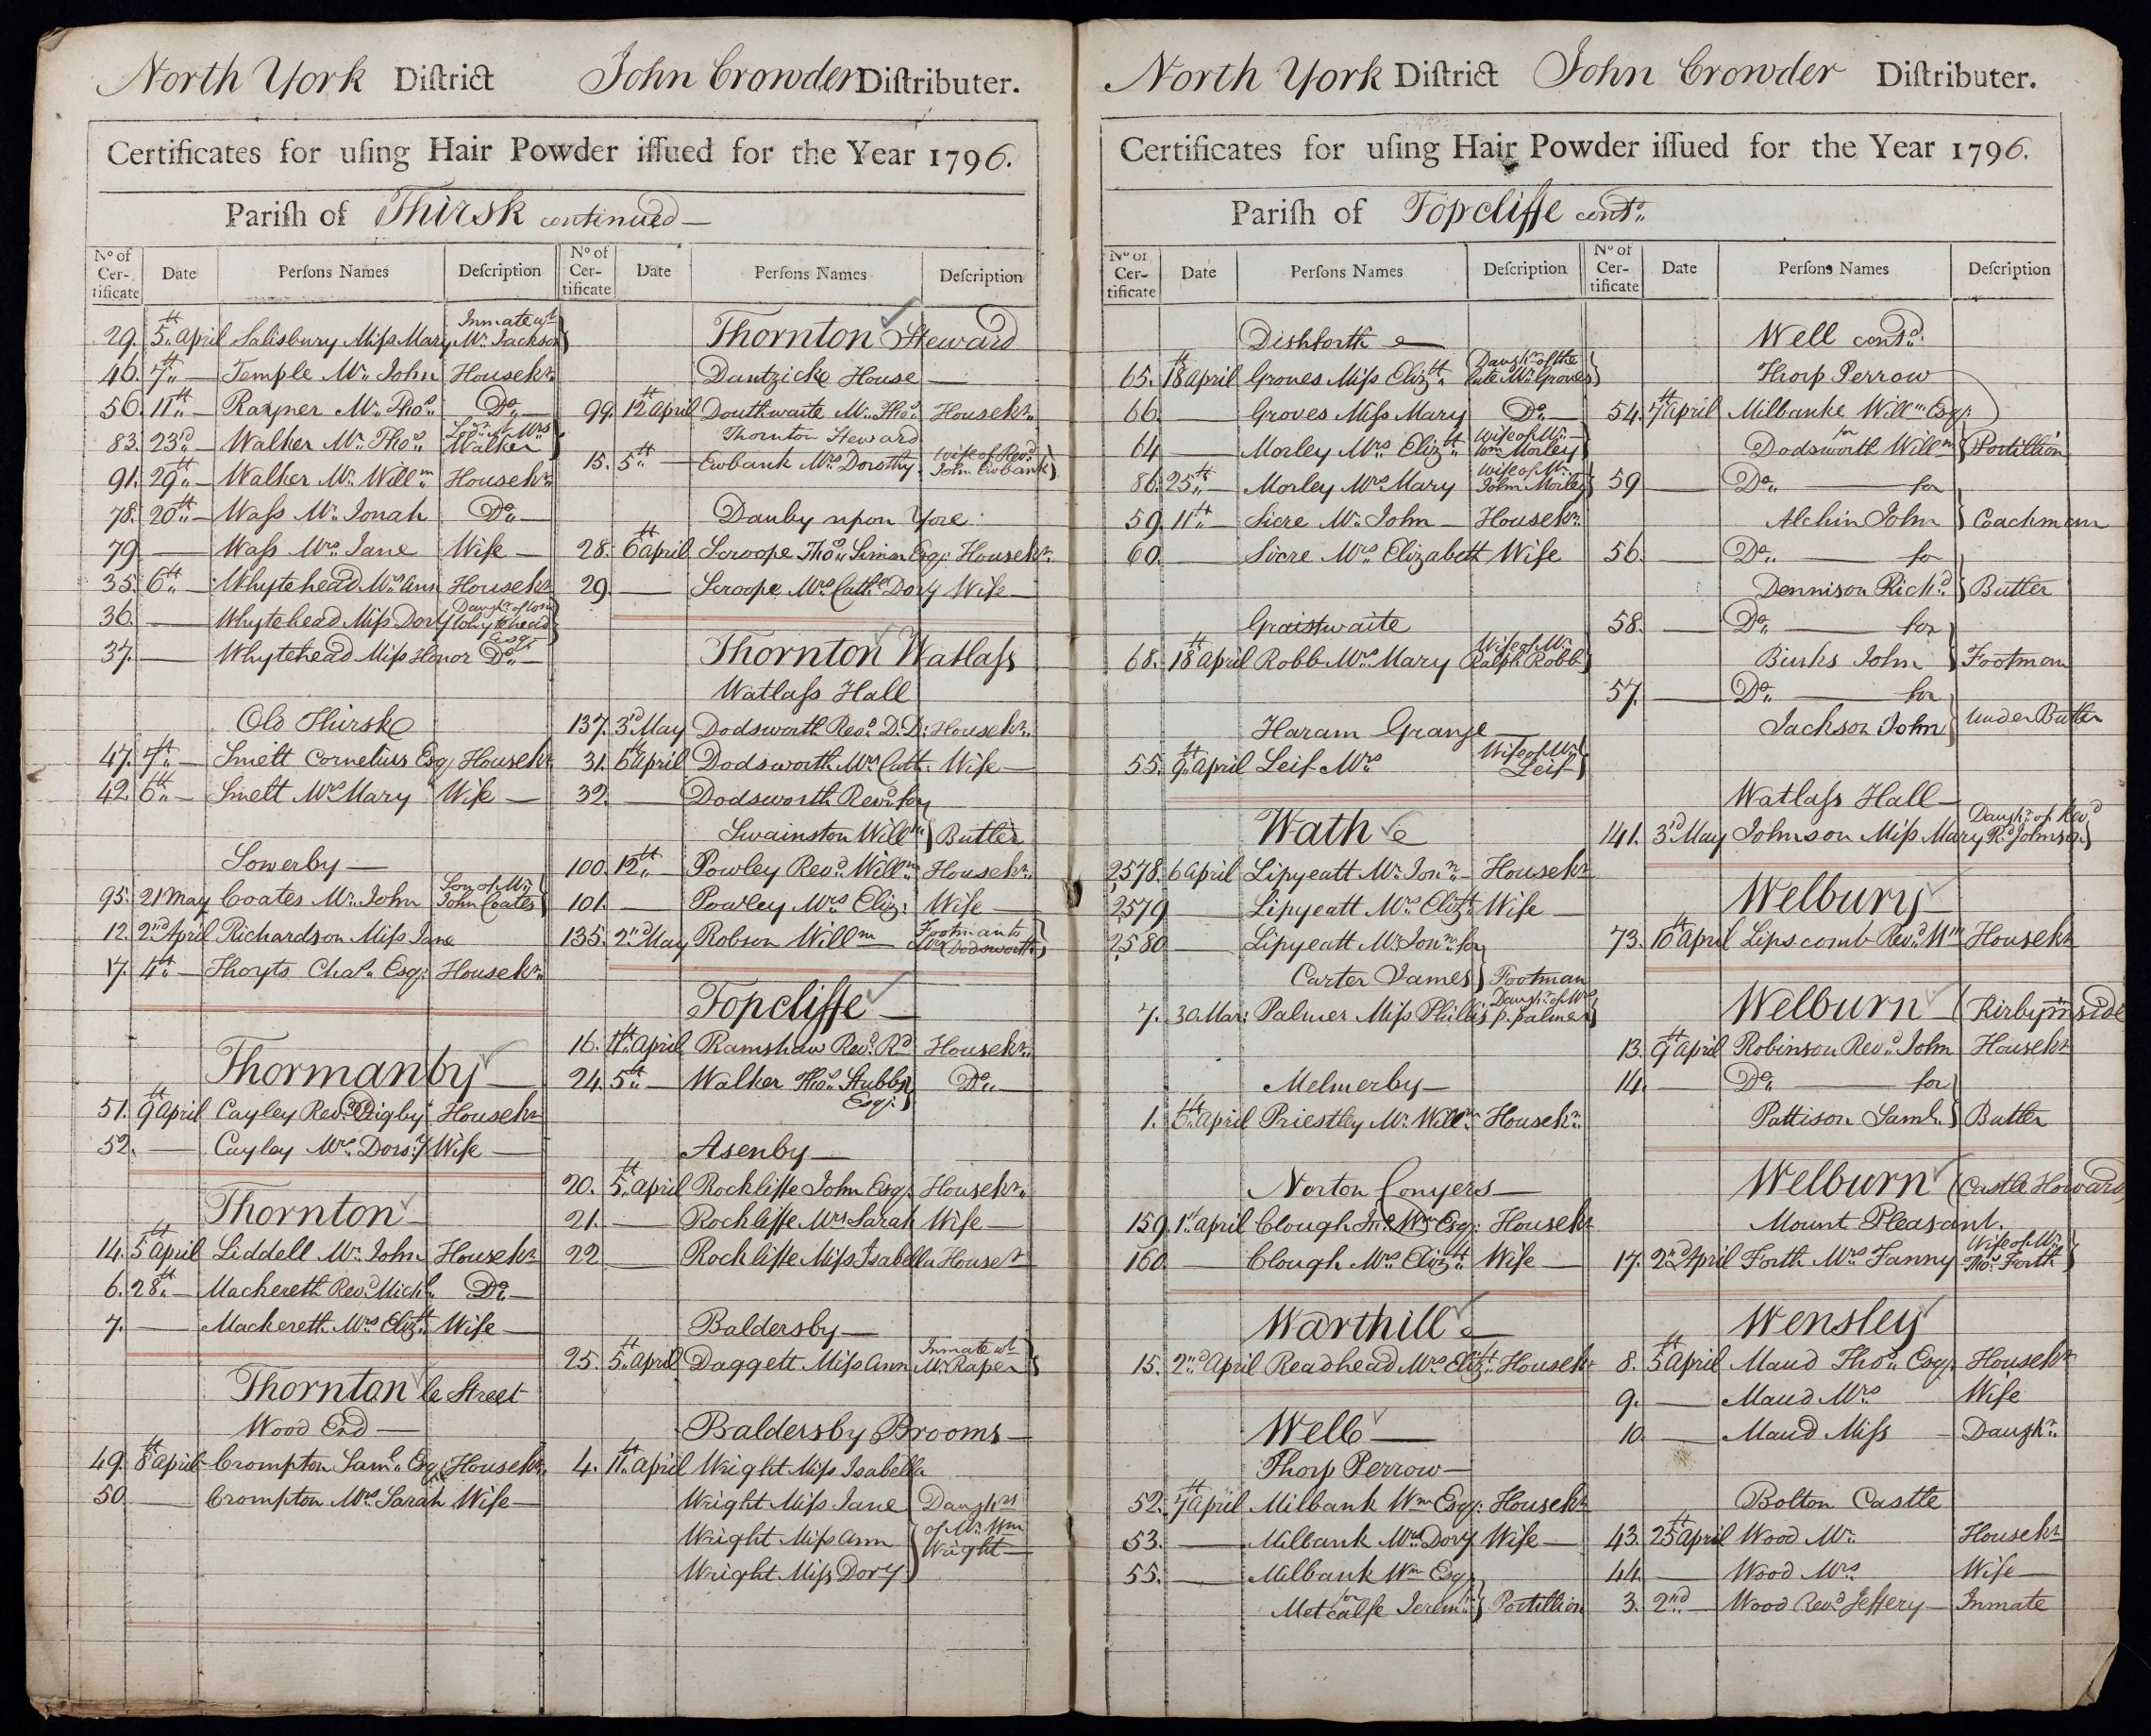 North York Diſtrict John Crowder Diſtributer.
Certificates for uſing Hair Powder iſſued for the Year 1796.
Pariſh of Thirsk continued —
Nº of Certificate Date Perſons Names Deſcription
29. 5th April Salisbury Miſs Mary Inmate wt Mr. Jackson
46. 7th — Temple Mr. John Housekr.
56. 11th — Rayner Mr. Thos. Do. —
83. 23rd — Walker Mr. Thos. Mrs Walker
91. 29th — Walker Mr. Willm Housekr.
78. 20th — Waſs Mr. Jonah Do. —
79 — Waſs Mrs. Jane Wife —
35. 6th — Whytehead Mrs Ann Housekr
36. — Whytehead Miſs Dory Daughr. of Whytehead Esqr.
37. — Whytehead Miſs Honor Do. —
Old Thirske
47. 7th — Smelt Cornelius Esq Housekr
42. 6th — Smelt Mrs Mary Wife —
Sowerby —
95. 21 May Coates Mr. John Son of Mr. John Coates
12. 2nd April Richardson Miſs Jane
17. 4th — Thoyts Chas. Esq: Housekr.
Thormanby —
51. 9th April Cayley Revd. Digby Housekr
52. — Cayley Mrs. Dory Wife —
Thornton —
14. 5th April Liddell Mr. John Housekr
6. 28th — Mackereth Revd. Michl. Do. —
7. — Mackereth Mrs. Elizth. Wife —
Thornton le Street
Wood End —
49. 8th April Crompton Saml. Esq: Housekr.
50 — Crompton Mrs. Sarah Wife —
Nº of Certificate Date Perſons Names Deſcription
Thornton Steward
Dantzicke House —
99. 12th April Douthwaite Mr. Thos. Housekr.
Thornton Steward
15. 5th — Ewbank Mrs. Dorothy Wife of Revd. John Ewbank
Danby upon Yore
28. 6th April Scroope Thos. Simon Esq: Housekr.
29. — Scroope Mrs. Cathe Dory Wife —
Thornton Watlaſs
Watlaſs Hall
137. 3rd May Dodsworth Revd. D.D: Housekr.
31. 6th April Dodsworth Mrs. Cath: Wife —
32. — Dodsworth Revd. for
Swainston Willm Butler
100. 12th — Powley Revd. Willm Housekr.
101. — Powley Mrs. Eliz: Wife —
135. 2nd May Robson Willm Footman to Mrs Dodsworth
Topcliffe —
16. 4th April Ramshaw Revd. Rd Housekr.
24. 5th — Walker Thos. Stubbs Esq: Do. —
Asenby —
20. 5th April Rockliffe John Esq: Housekr.
21. — Rockliffe Mrs. Sarah Wife —
22 — Rockliffe Miſs Isabella Housekr
Baldersby —
25. 5th April Daggett Miſs Ann Inmate wt Mr. Raper
Baldersby Brooms —
4. 11th April Wright Miſs Isabella
Wright Miſs Jane
Wright Miſs Ann
Wright Miſs Dory
Daughrs of Mr. Wm Wright —
North York Diſtrict John Crowder Diſtributer.
Certificates for uſing Hair Powder iſſued for the Year 1796.
Pariſh of Topcliffe contd.
Nº of Certificate Date Perſons Names Deſcription
Dishforth
65. 18th April Groves Miſs Elizth. Daughr. of the late Mr. Groves
66 — Groves Miſs Mary Do. —
64 — Morley Mrs. Elizth Wife of Mr. Wm. Morley
86. 25th — Morley Mrs. Mary Wife of Mr. John Morley
59. 11th — Sicre Mr. John — Housekr.
60. — Sicre Mrs. Elizabeth Wife
Graistwaite
68. 18th April Robb Mrs. Mary Wife of Mr. Ralph Robb
Haram Grange —
55. 9th April Leif Mrs. Wife of Mr. Leif
Wath
2578. 6 April Lipyeatt Mr. Jonn. — Housekr
2579 — Lipyeatt Mrs. Elizth. Wife —
2580 — Lipyeatt Mr. Jonn. for
Carter James Footman
7. 30 Mar: Palmer Miſs Phillis Daughr. of Mrs P. Palmer
Melmerby —
1. 6th April Priestley Mr. Willm. Housekr.
Norton Conyers —
159. 1st April Clough Wm Esq: Housekr
160 — Clough Mrs. Elizth Wife —
Warthill
15. 2nd April Readhead Mrs. Elizth. Housekr
Well —
Thorp Perrow —
52. 7th April Milbank Wm Esq: Housekr
53. — Milbank Mrs. Dory Wife —
55. — Milbank Wm Esq:
for Metcalfe Jeremh. Postillion
Nº of Certificate Date Perſons Names Deſcription
Well contd.
Thorp Perrow
54. 7th April Milbanke Willm Esq:
for Dodsworth Willm Postillion
59 — Do. — for
Alchin John Coachman
56. — Do. — for
Dennison Richd. Butler
58. — Do. — for
Binks John Footman
57. — Do. — for
Jackson John Under Butler
Watlaſs Hall —
141. 3rd May Johnson Miſs Mary Daughr. of Revd Rd. Johnson
Welbury
73. 10th April Lipscomb Revd. Wm Housekr
Welburn (Kirbymside
13. 9th April Robinson Revd. John Housekr
14. — Do. — for
Pattison Saml. Butler
Welburn (Castle Howard
Mount Pleasant.
17. 2nd April Forth Mrs. Fanny Wife of Mr. Thos. Forth
Wensley
8. 5th April Maud Thos. Esq: Housekr
9. — Maud Mrs Wife
10. — Maud Miſs — Daughr.
Bolton Castle
43. 25th April Wood Mr. Housekr
44. — Wood Mrs Wife —
3. 2nd — Wood Revd Jeffery — Inmate